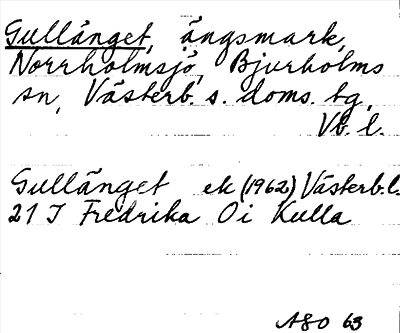 Gullänget, ängsmark,
Norrholmsjö, Bjurholms
sn, Västerb. s. doms. tg,
Vb. l.
Gullänget ek (1962) Västerb.l.
21 J Fredrika Oi Kulla
ASO 63